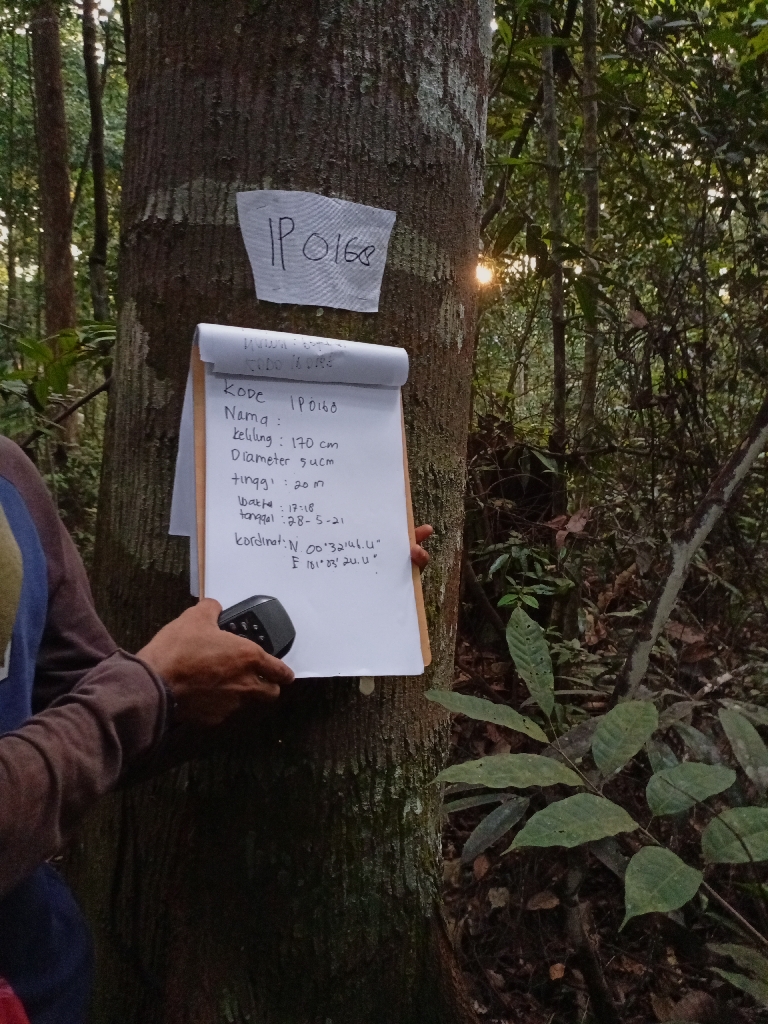 IP0168
KODE IP0168
Nama :
keliling : 170 cm
Diameter 54cm
tinggi : 20 m
waktu : 17:18
tanggal : 28-5-21
kordinat: N. 00°32'46.4"
E 101°03' 24.4"